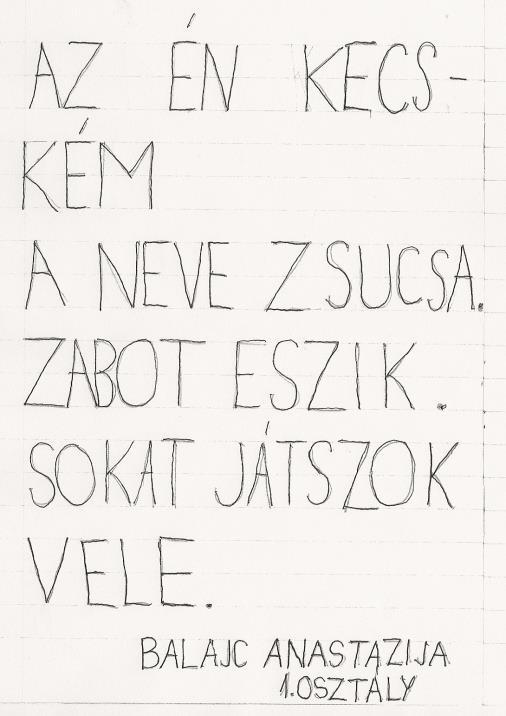 AZ ÉN KECS-
KÉM
A NEVE ZSUCSA.
ZABOT ESZIK.
SOKAT JÁTSZOK
VELE.
BALAJC ANASTAZIJA
1.OSZTALY